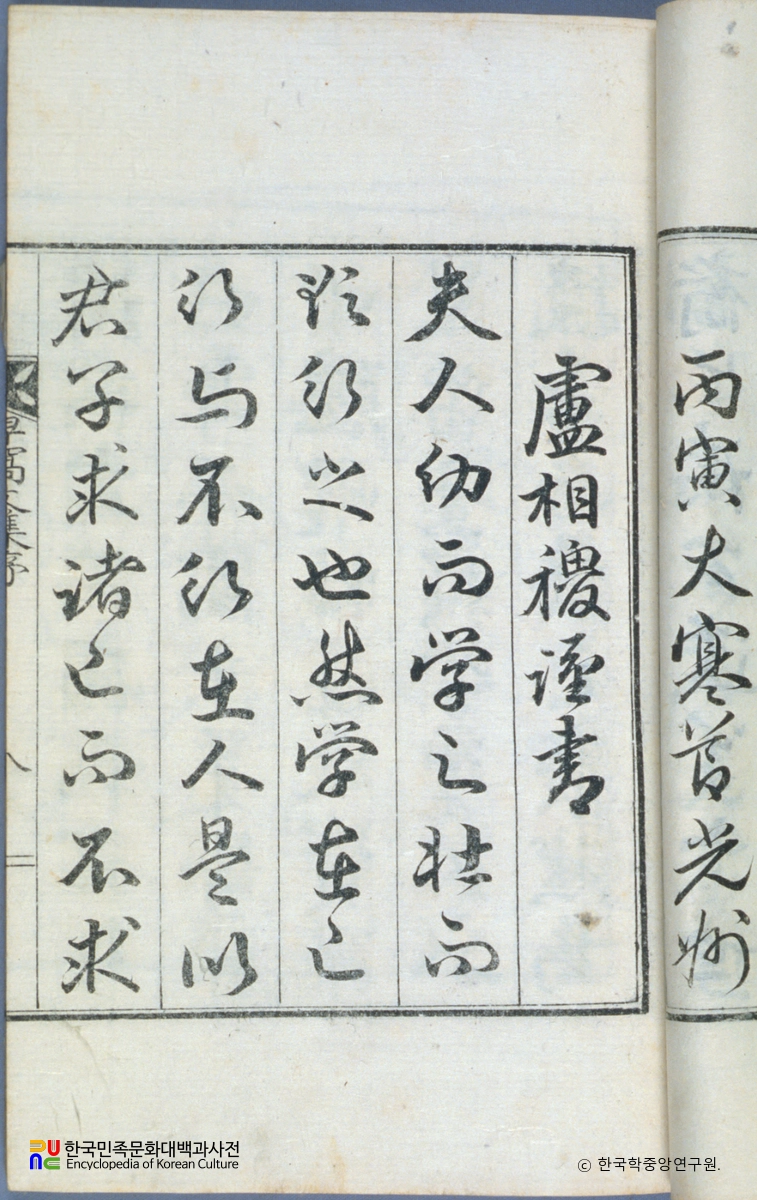 丙寅大寒光州
盧相稷謹書
夫人幼而学之壮而
欲行之也然学在己
行与不行在人是以
君子求諸己而不求
窩文集序
八
한국민족문화대백과사전
Encyclopedia of Korean Culture
ⓒ 한국학중앙연구원.